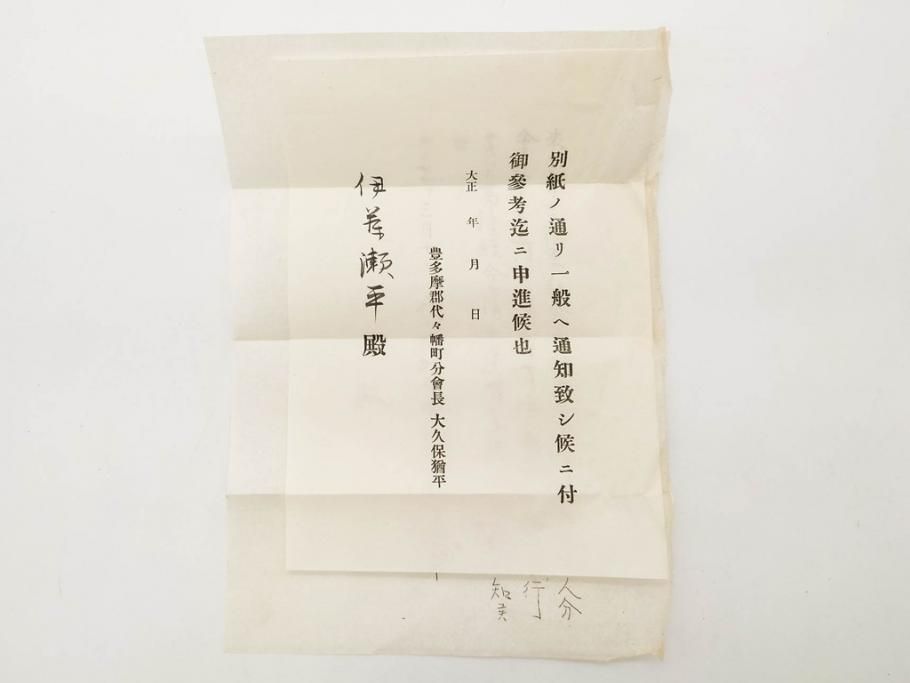 別紙ノ通リ一般ヘ通知致シ候ニ付
御參考迄ニ申進候也
大正 年 月 日
豊多摩郡代々幡町分會長 大久保猶平
伊
瀬平殿
人分
行
知